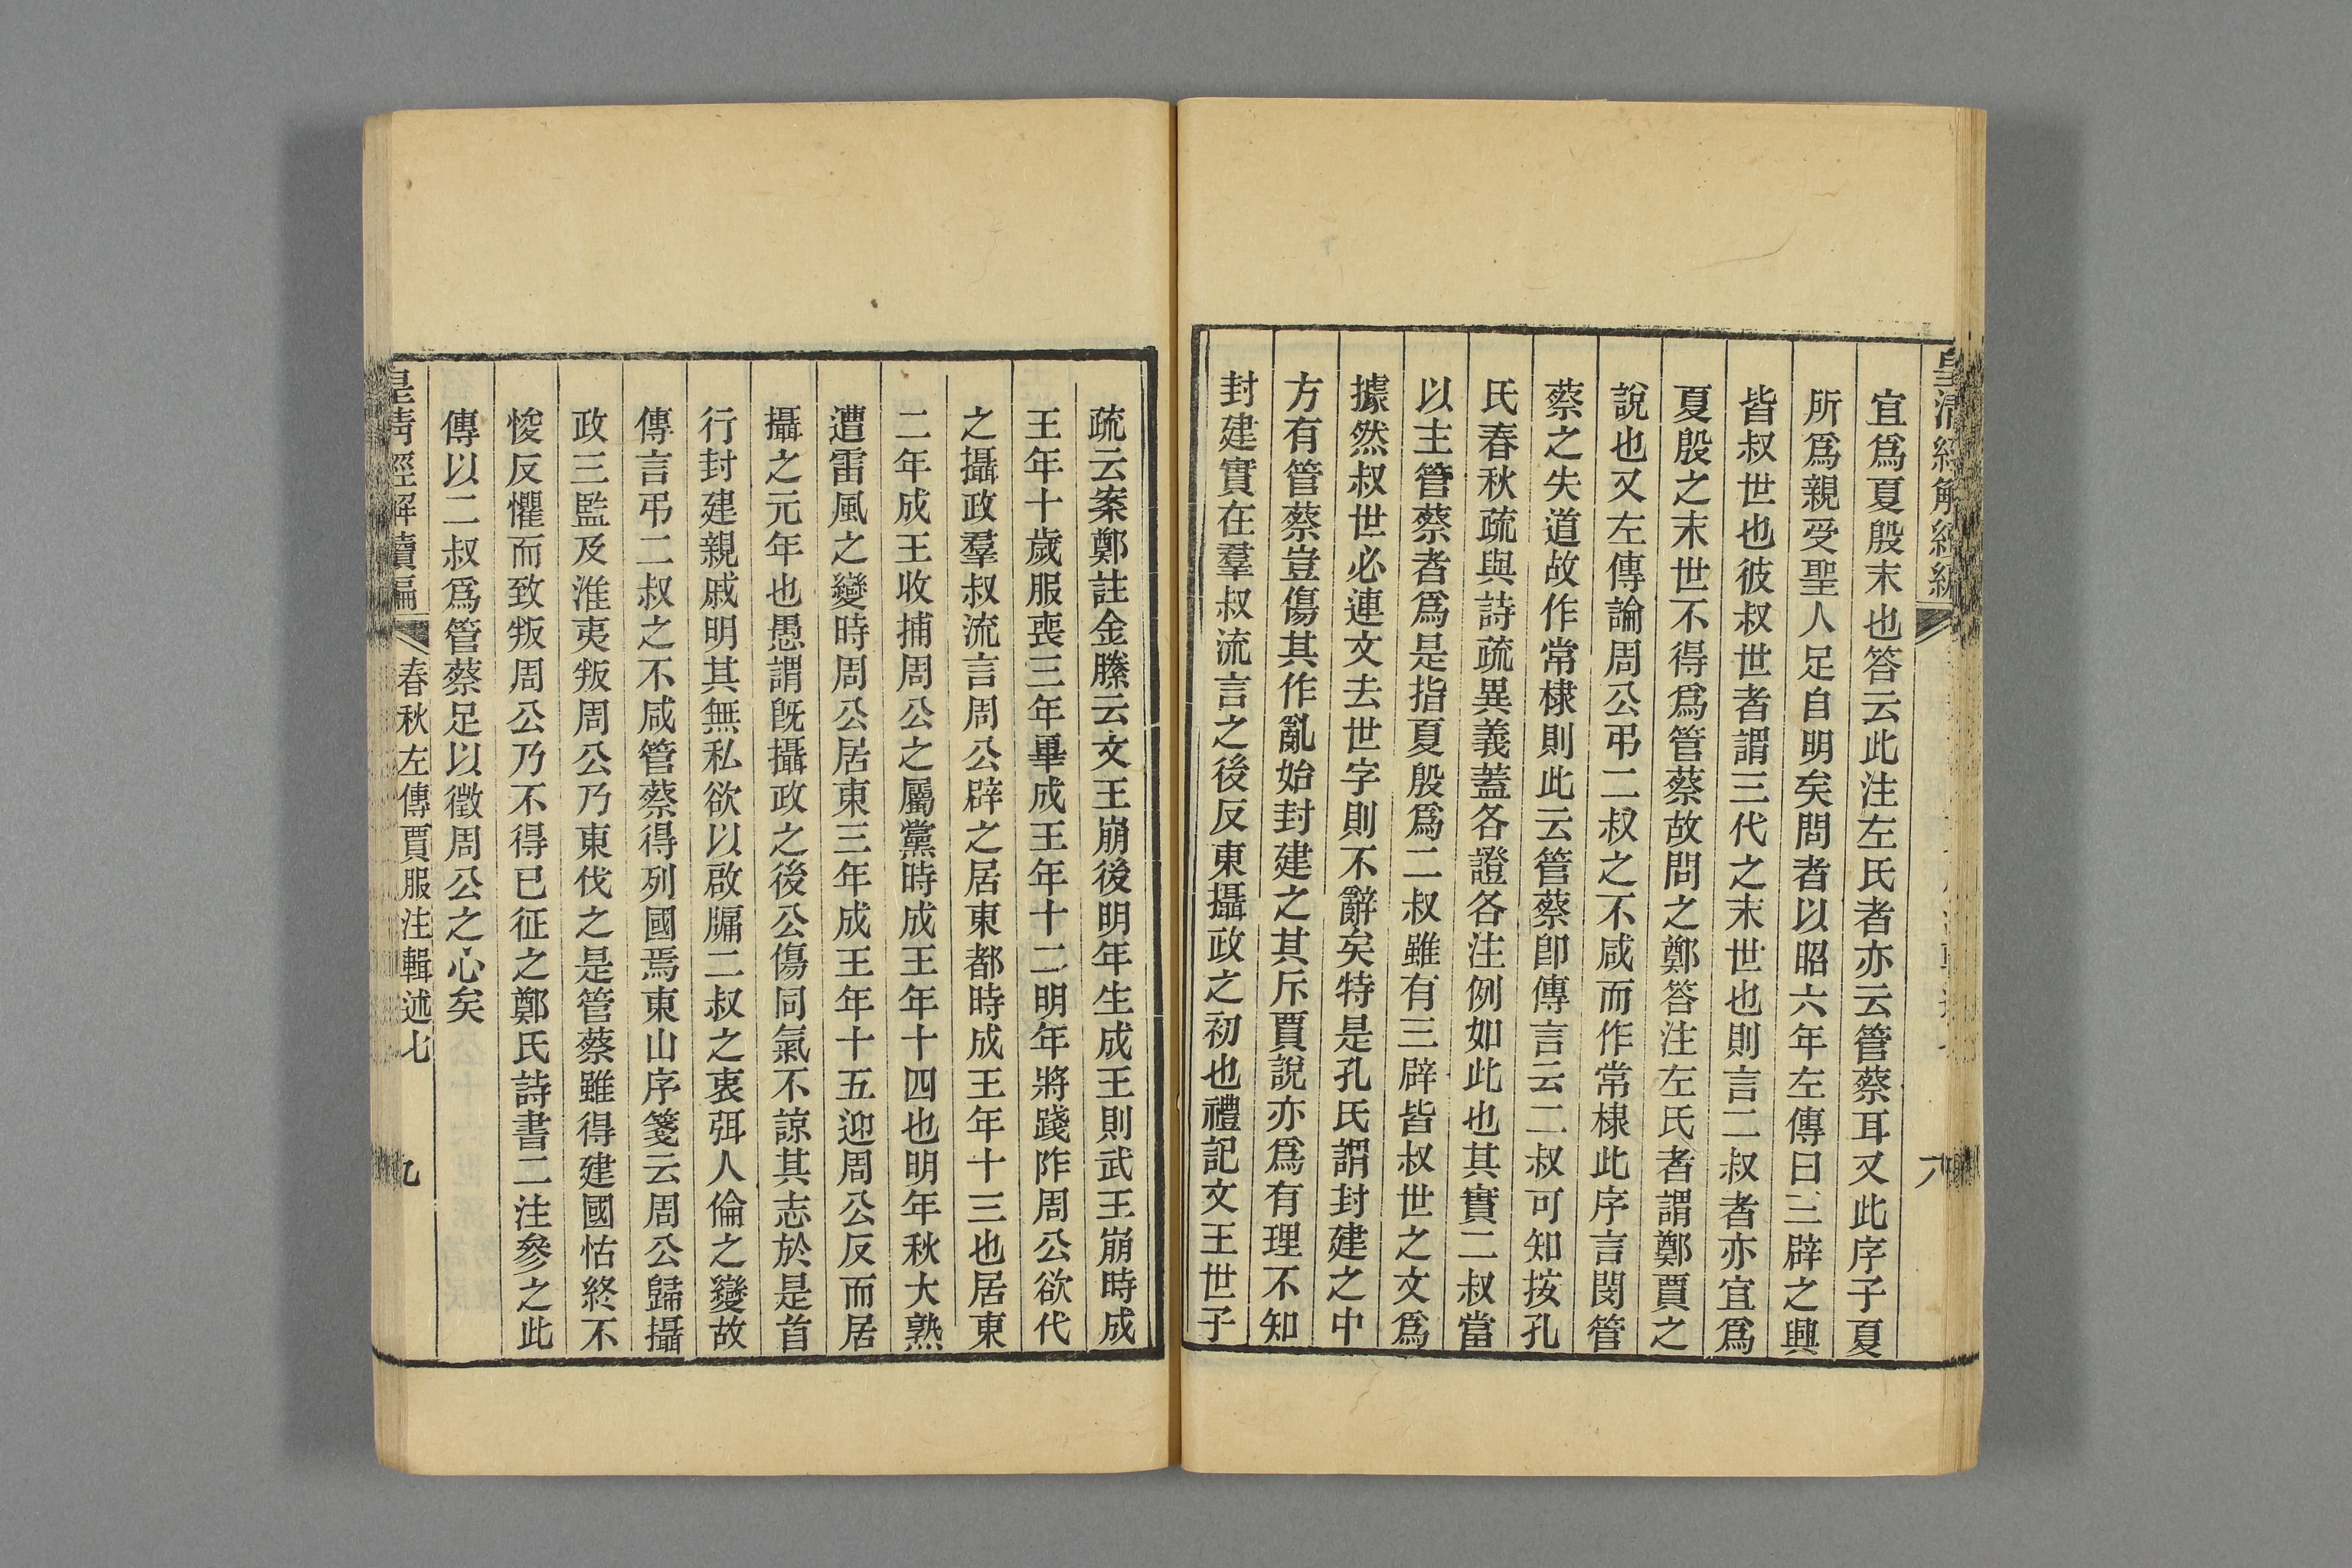 皇清經解續編
八
宜爲夏殷末也答云此注左氏者亦云管蔡耳又此序子夏
所爲親受聖人足自明矣問者以昭六年左傳曰三辟之興
皆叔世也彼叔世者謂三代之末世也則言二叔者亦宜爲
夏殷之末世不得爲管蔡故問之鄭答注左氏者謂鄭賈之
說也又左傳論周公弔二叔之不咸而作常棣此序言閔管
蔡之失道故作常棣則此云管蔡卽傳言云二叔可知按孔
氏春秋疏與詩疏異義蓋各證各注例如此也其實二叔當
以主管蔡者爲是指夏殷爲二叔雖有三辟皆叔世之文爲
據然叔世必連文去世字則不辭矣特是孔氏謂封建之中
方有管蔡豈傷其作亂始封建之其斥賈說亦爲有理不知
封建實在羣叔流言之後反東攝政之初也禮記文王世子
疏云案鄭註金縢云文王崩後明年生成王則武王崩時成
王年十歲服喪三年畢成王年十二明年將踐阼周公欲代
之攝政羣叔流言周公辟之居東都時成王年十三也居東
二年成王收捕周公之屬黨時成王年十四也明年秋大熟
遭雷風之變時周公居東三年成王年十五迎周公反而居
攝之元年也愚謂旣攝政之後公傷同氣不諒其志於是首
行封建親戚明其無私欲以啟牖二叔之衷弭人倫之變故
傳言弔二叔之不咸管蔡得列國焉東山序箋云周公歸攝
政三監及淮夷叛周公乃東伐之是管蔡雖得建國怙終不
悛反懼而致叛周公乃不得已征之鄭氏詩書二注參之此
傳以二叔爲管蔡足以徵周公之心矣
皇清經解續編
春秋左傳賈服注輯述七
九